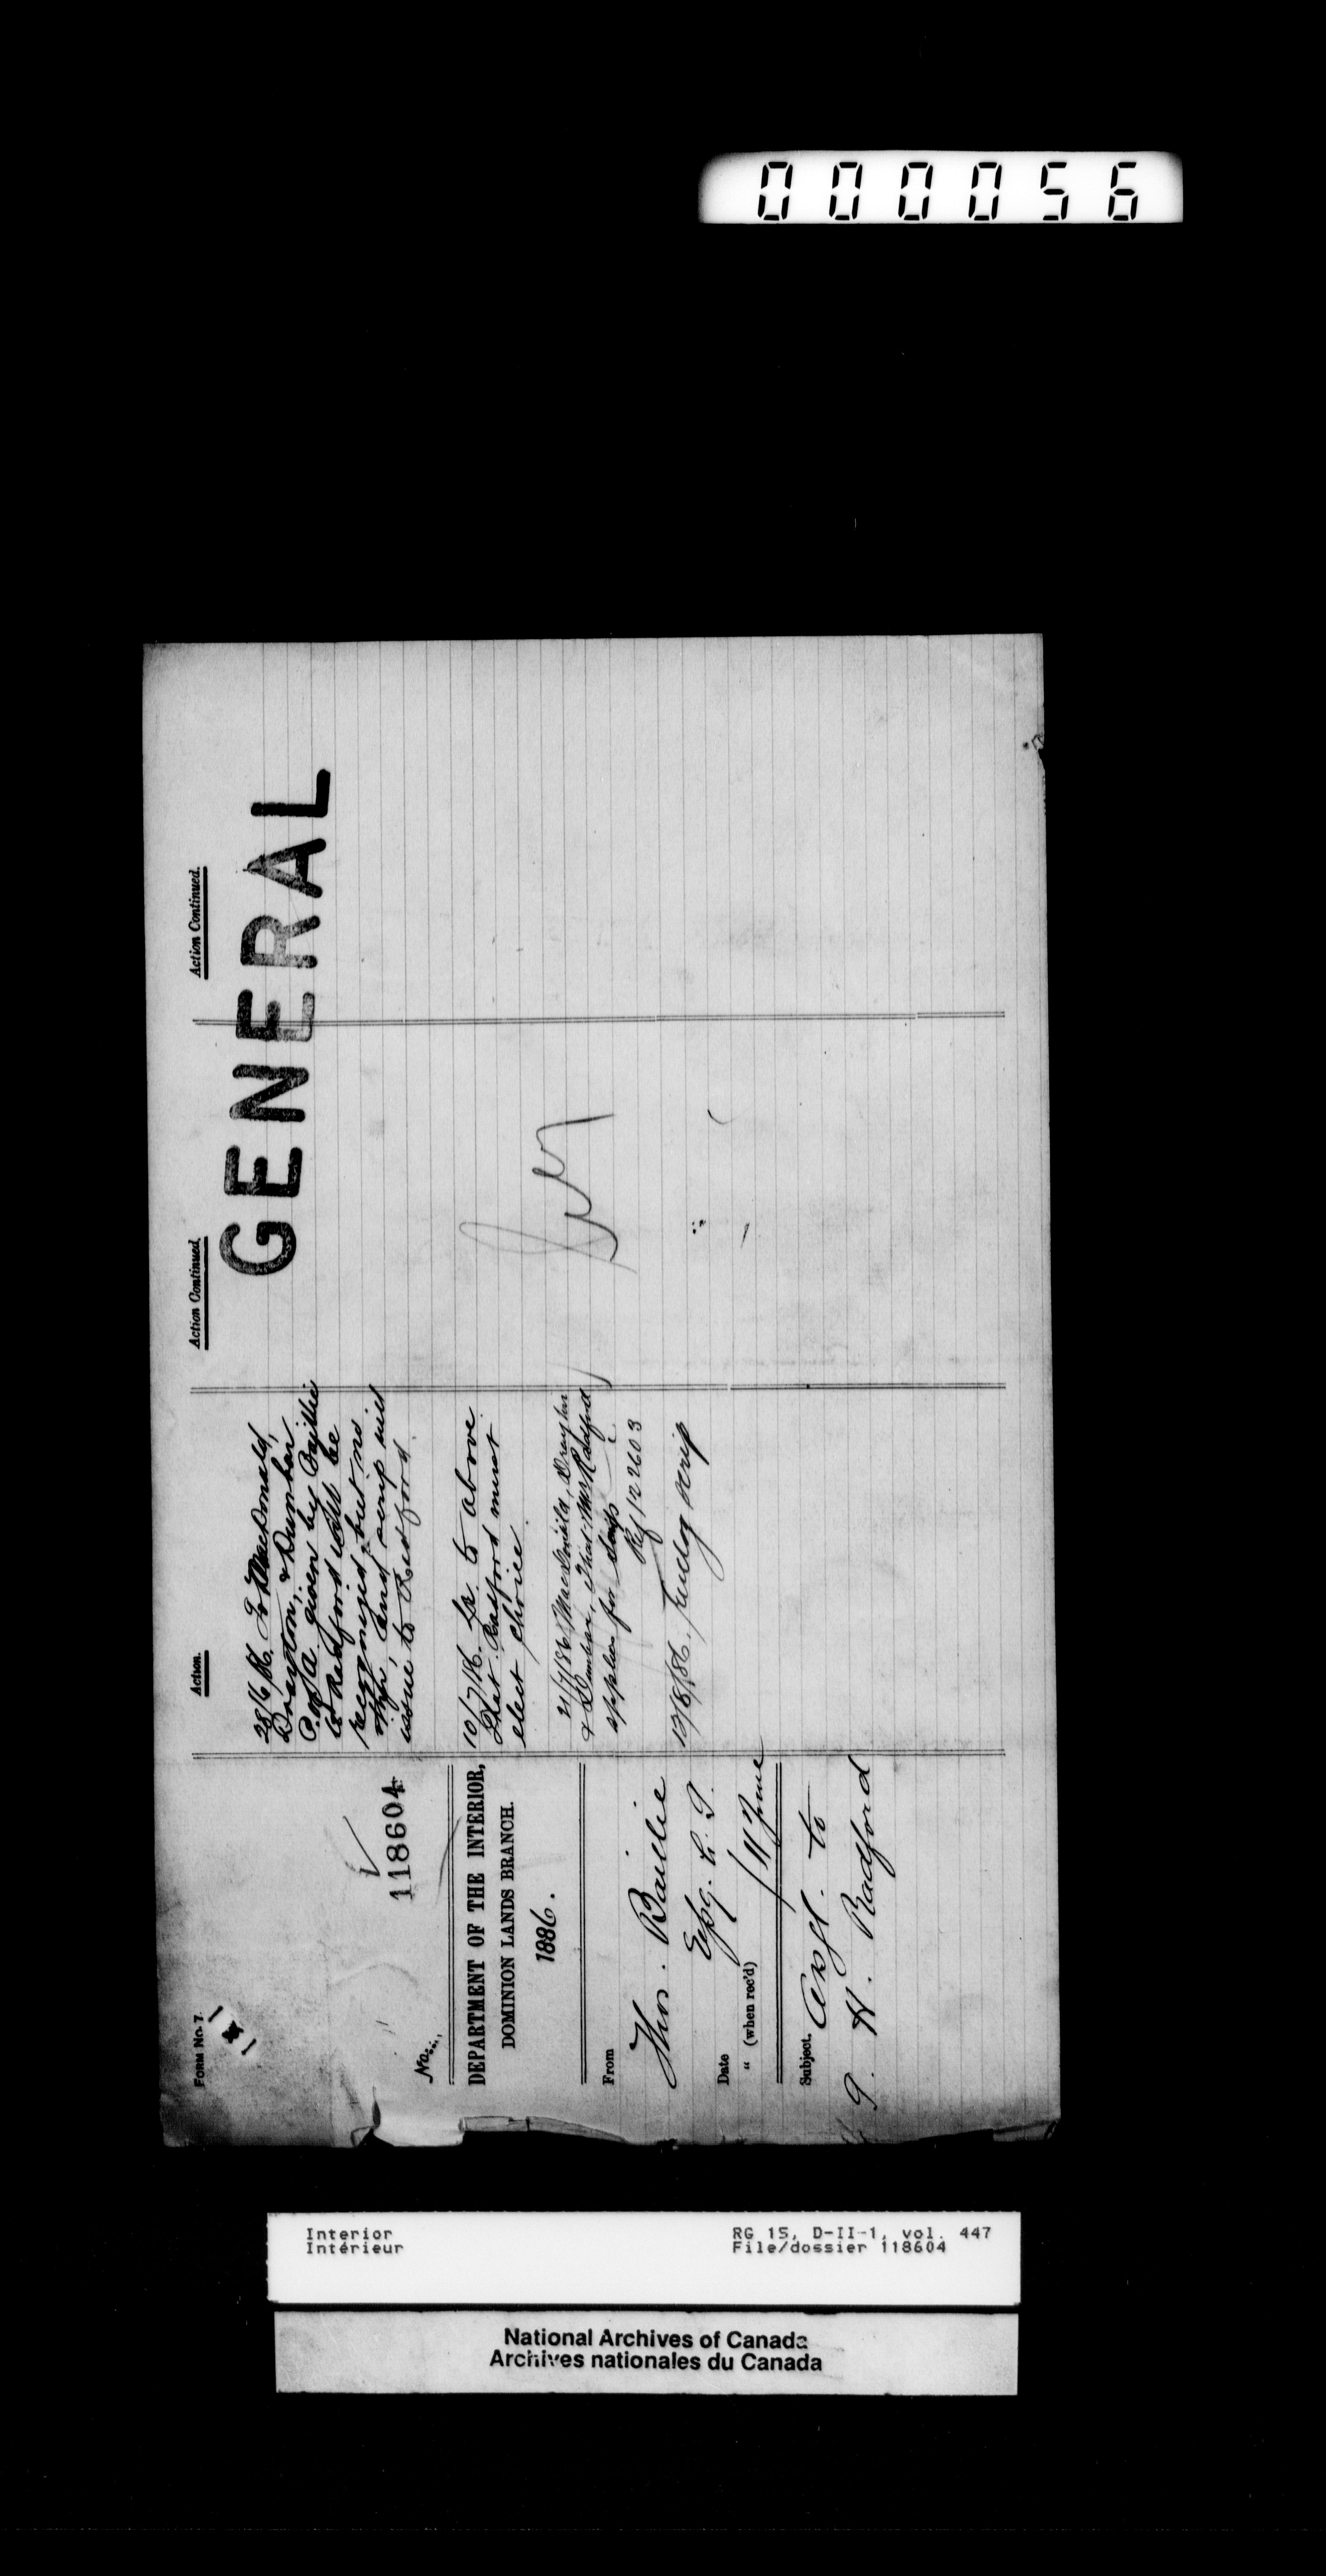 000056
FORM No. 7.
118604
No.
DEPARTMENT OF THE INTERIOR,
DOMINION LANDS BRANCH.
1886.
From
Thos. Baillie
Esq. C. P.
Date
" (when rec'd) 11 June
Subject. Assgt. to
G. H. Radford
Action.
28/6/86. To MacDonald,
Drayton, & Dunbar
P. of A. given by Baillie
to Radford will be
recognized, but no
and scrip will
issue to Radford.
10/7/86. Lr. to above
that Radford must
elect choice.
21/7/86 MacDonald, Drayton
& Dunbar, that Mr Radford
applies for scrip
Ref 122603
12/8/86. scrip
Action Continued.
Action Continued.
GENERAL
Interior
Intérieur
RG 15, D-II-1, vol. 447
File/dossier 118604
National Archives of Canada
Archives nationales du Canada